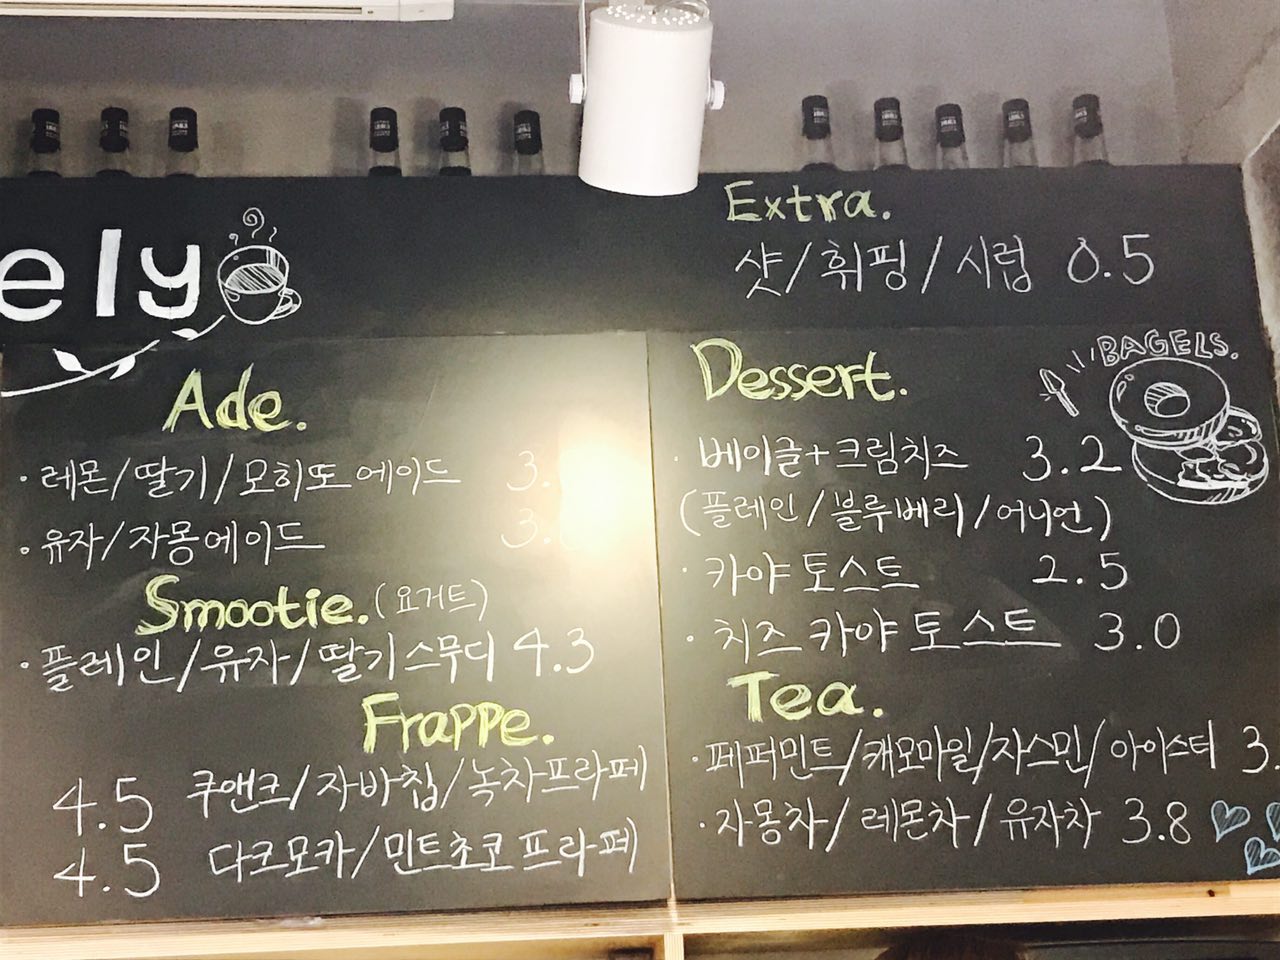 ely
Extra.
샷/휘핑/시럽 0.5
Ade.
·레몬/딸기/모히또에이드 3.
·유자/자몽에이드 3.
Smootie.(요거트)
·플레인/유자/딸기스무디 4.3
Frappe.
4.5 쿠앤크/자바칩/녹차프라페
4.5 다크모카/민트초코프라페
Dessert.
BAGELS.
·베이글+크림치즈 3.2
(플레인/블루베리/어니언)
·카야토스트 2.5
·치즈카야토스트 3.0
Tea.
·페퍼민트/캐모마일/자스민/아이스티 3.
·자몽차/레몬차/유자차 3.8